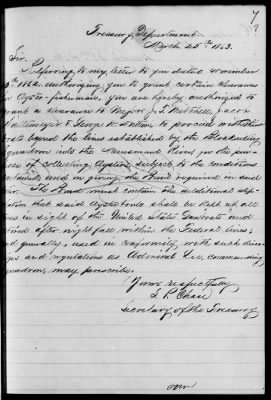 7
Treasury Department
March 25th 1863.
Sir:
Referring to my letter to you dated November
1862 authorizing you to grant certain clearances
to Oyster-fishermen, you are hereby authorized to
grant a clearance to Messrs. J. Mitchell, Jacob
& George W.
beyond the lines established by the Blockading
Squadron into the Nansemond River for the
of collecting Oysters, subject to the conditions
and on giving the Bond required in said
The Bond must contain the additional
that said Oyster boats shall be kept at all
in sight of the United States Gunboats and
after night fall within the Federal lines;
generally, used in conformity with such
and regulations as Admiral Lee, commanding
Squadron, may prescribe.
Yours respectfully
S. P. Chase
Secretary of the Treasury
over